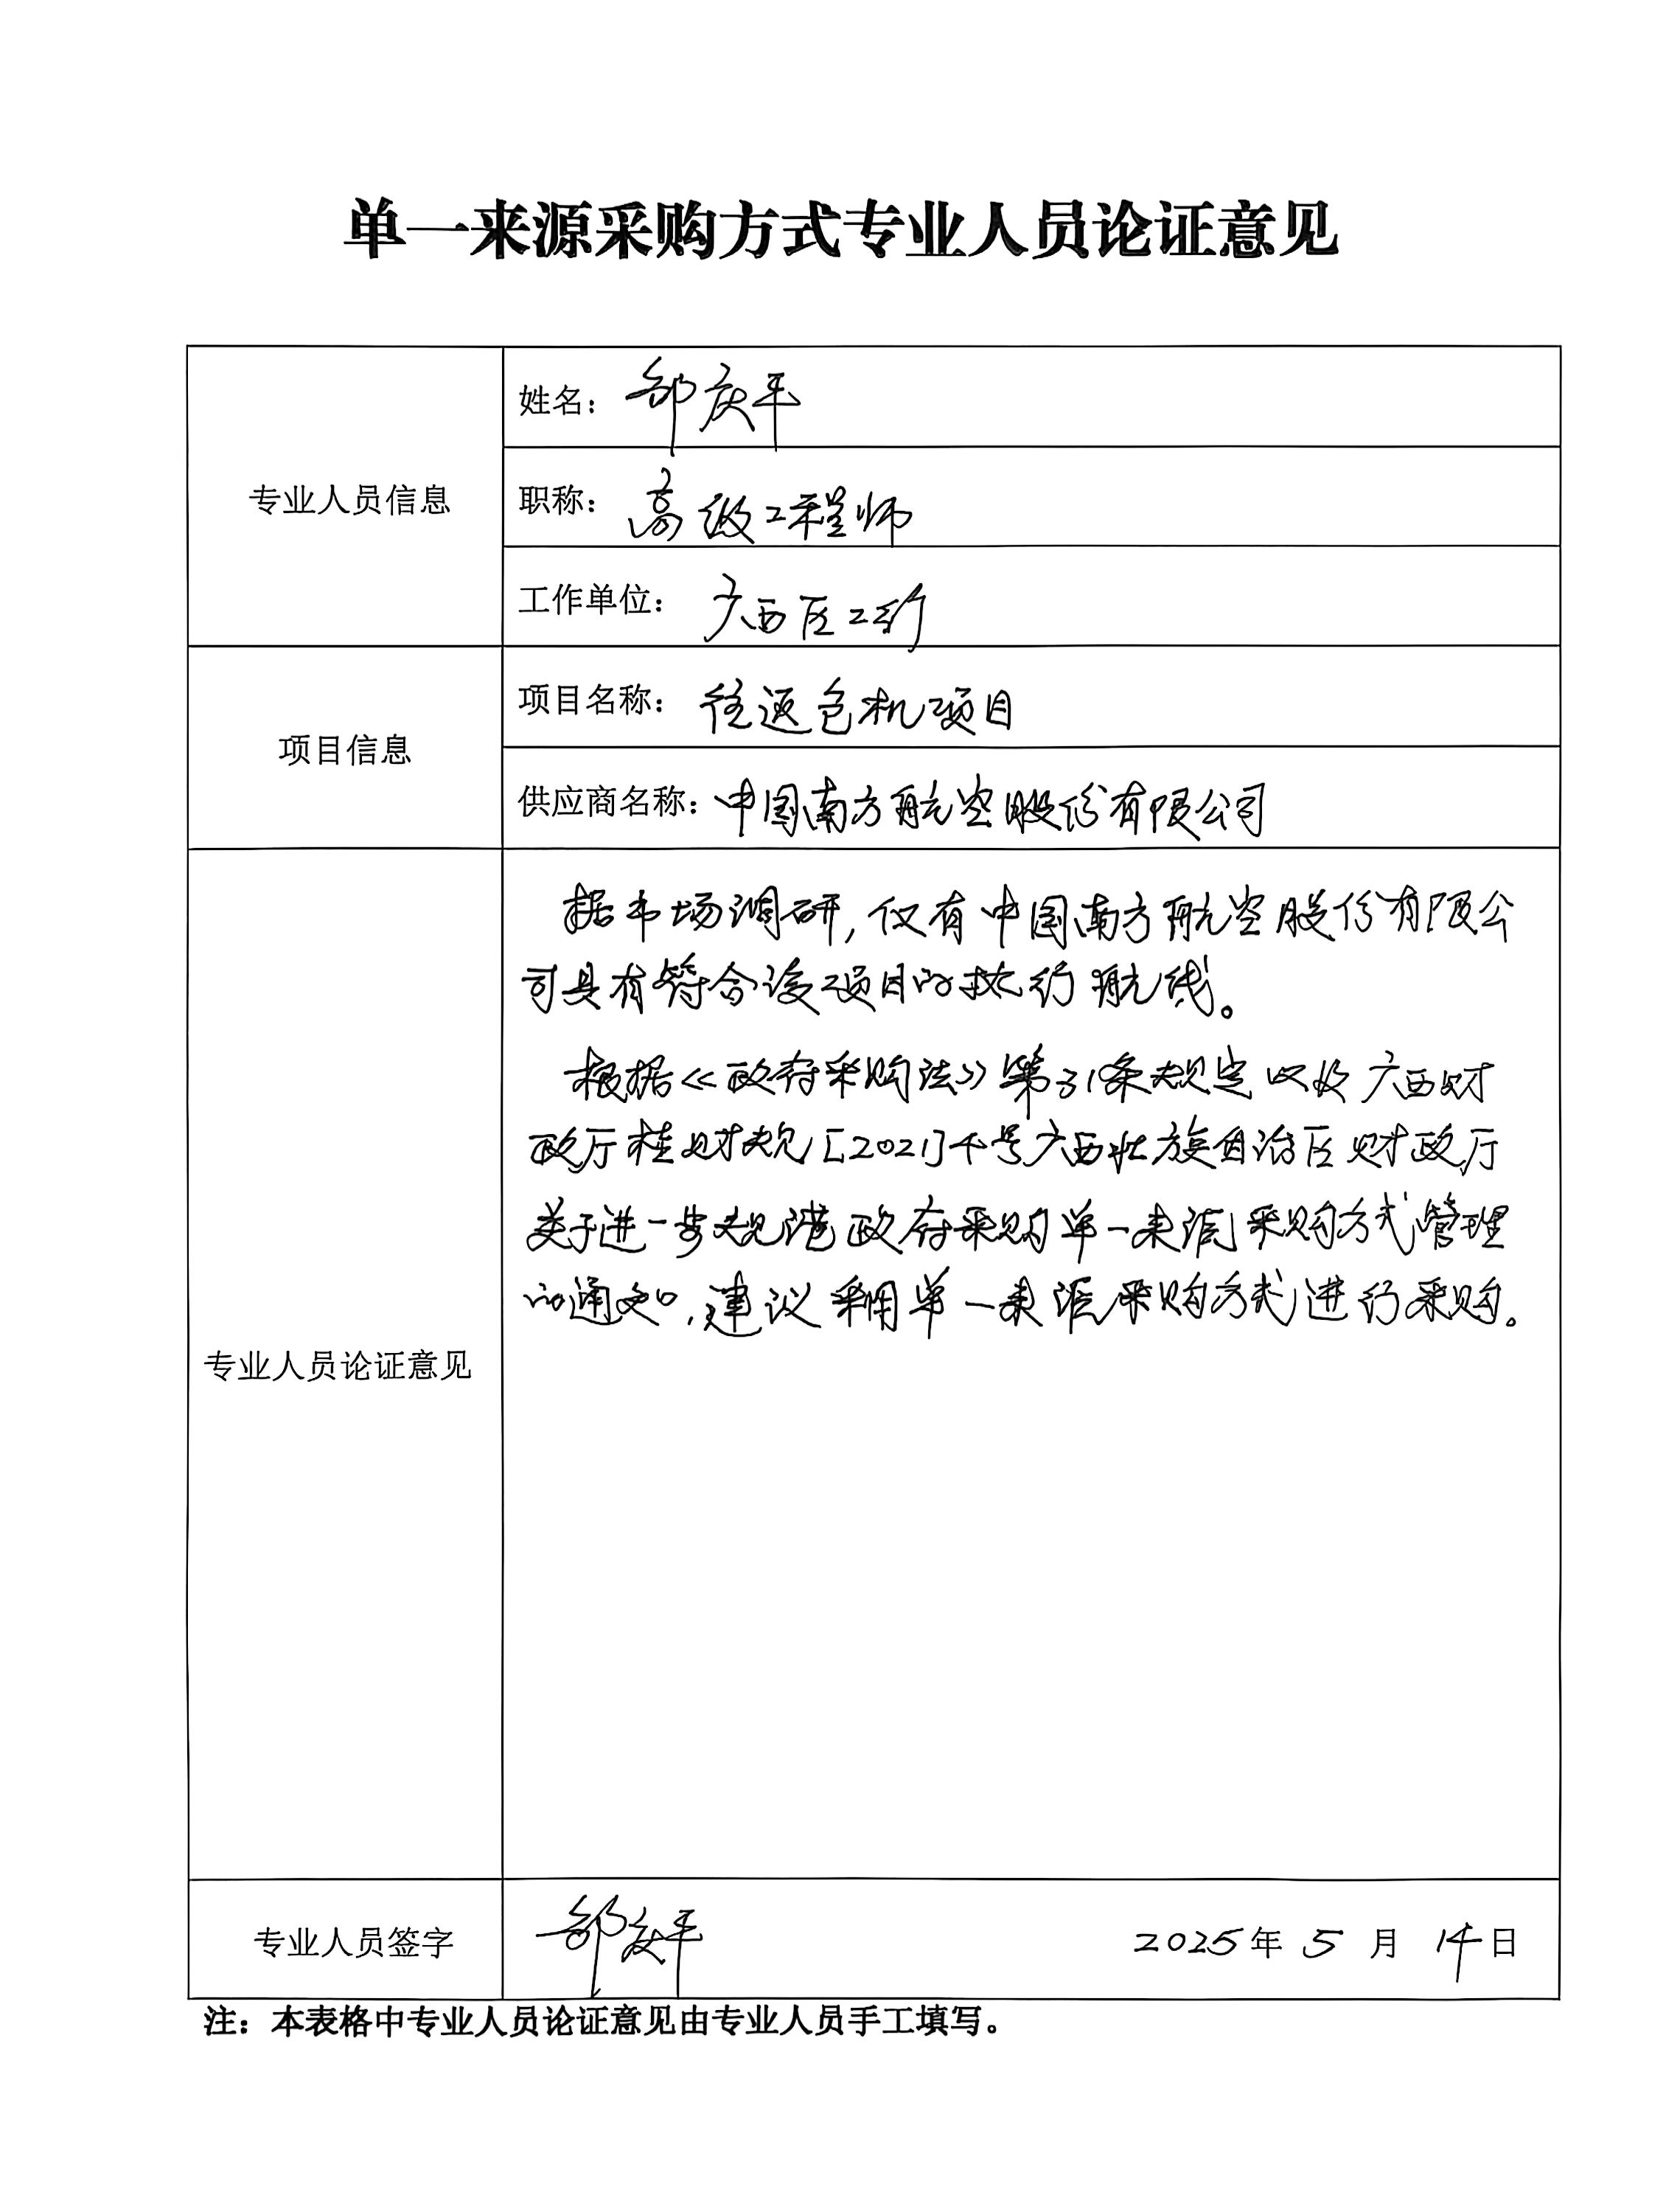 单一来源采购方式专业人员论证意见
专业人员信息
姓名：邹庆平
职称：高级工程师
工作单位：广西区工行
项目信息
项目名称：往返包机项目
供应商名称：中国南方航空股份有限公司
专业人员论证意见
据市场调研，仅有中国南方航空股份有限公
司具有符合该项目的执行航线。
根据《政府采购法》第31条规定以及广西财
政厅桂财规〔2021〕4号广西壮族自治区财政厅
关于进一步规范政府采购单一来源采购方式管理
的通知，建议采用单一来源采购方式进行采购。
专业人员签字
邹庆平 2025年5月14日
注：本表格中专业人员论证意见由专业人员手工填写。